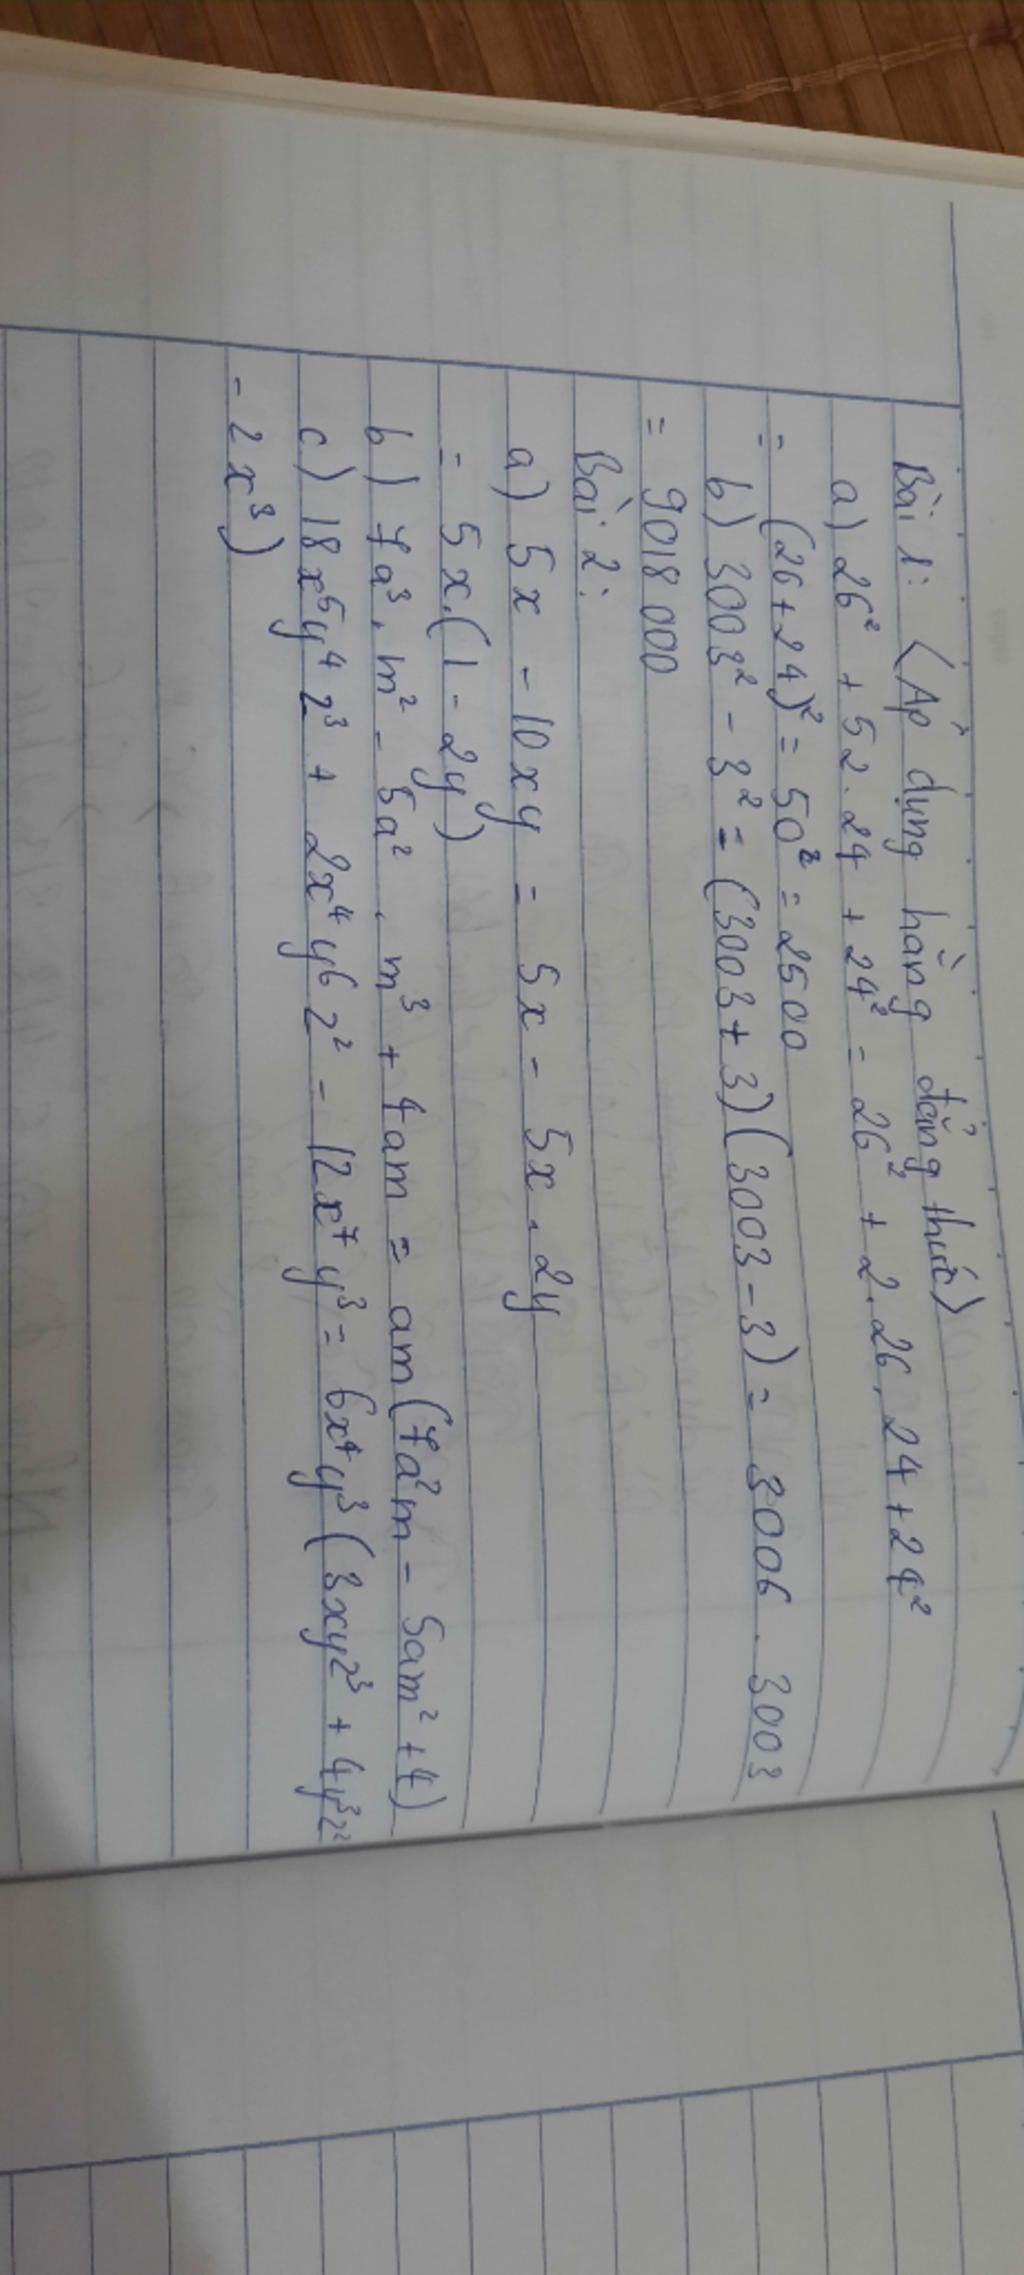 Bài 1: (Áp dụng hằng đẳng thức)
a) 26² + 52.24 + 24² = 26² + 2.26.24 + 24²
= (26+24)² = 50² = 2500
b) 3003² - 3² = (3003+3)(3003-3) = 3006.3003
= 9018000
Bài 2:
a) 5x - 10xy = 5x - 5x.2y
= 5x.(1-2y)
b) 7a³.m² - 5a².m³ + 4am = am(7a²m - 5am² + 4)
c) 18x⁵y⁴z³ + 2x⁴y⁶z² - 12x⁷y³ = 6x⁴y³(3xyz³ + 4y³z²
- 2x³)